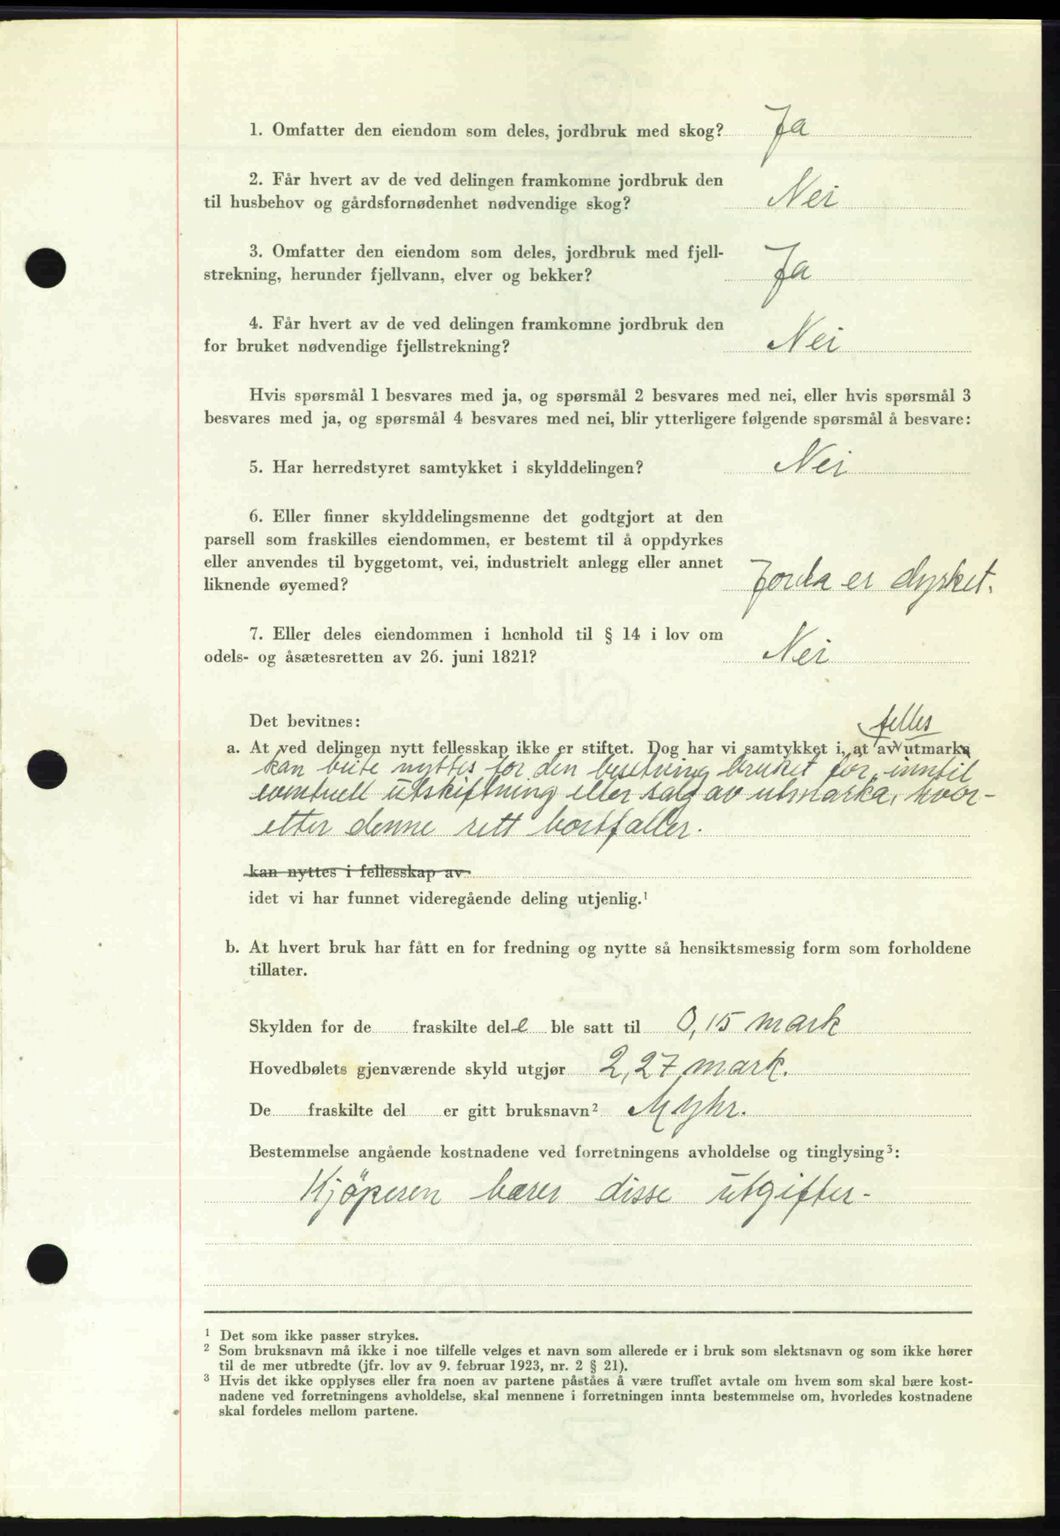 1. Omfatter den eiendom som deles, jordbruk med skog? Ja
2. Får hvert av de ved delingen framkomne jordbruk den
til husbehov og gårdsfornødenhet nødvendige skog? Nei
3. Omfatter den eiendom som deles, jordbruk med fjell-
strekning, herunder fjellvann, elver og bekker? Ja
4. Får hvert av de ved delingen framkomne jordbruk den
for bruket nødvendige fjellstrekning? Nei
Hvis spørsmål 1 besvares med ja, og spørsmål 2 besvares med nei, eller hvis spørsmål 3
besvares med ja, og spørsmål 4 besvares med nei, blir ytterligere følgende spørsmål å besvare:
5. Har herredstyret samtykket i skylddelingen? Nei
6. Eller finner skylddelingsmenne det godtgjort at den
parsell som fraskilles eiendommen, er bestemt til å oppdyrkes
eller anvendes til byggetomt, vei, industrielt anlegg eller annet
liknende øyemed? Jorda er dyrket.
7. Eller deles eiendommen i henhold til § 14 i lov om
odels- og åsætesretten av 26. juni 1821? Nei
Det bevitnes:
felles
a. At ved delingen nytt fellesskap ikke er stiftet. Dog har vi samtykket i, at av utmarka
kan beite nyttes for den besetning bruket før, inntil
eventuell utskiftning eller salg av utmarka, hvor-
etter denne rett bortfaller.
kan nyttes i fellesskap av
idet vi har funnet videregående deling utjenlig.¹
b. At hvert bruk har fått en for fredning og nytte så hensiktsmessig form som forholdene
tillater.
Skylden for de fraskilte dele ble satt til 0,15 mark
Hovedbølets gjenværende skyld utgjør 2,27 mark.
De fraskilte del er gitt bruksnavn² Myhr.
Bestemmelse angående kostnadene ved forretningens avholdelse og tinglysing³:
Kjöperen bærer disse utgifter.
¹ Det som ikke passer strykes.
² Som bruksnavn må ikke i noe tilfelle velges et navn som allerede er i bruk som slektsnavn og som ikke hører
til de mer utbredte (jfr. lov av 9. februar 1923, nr. 2 § 21).
³ Hvis det ikke opplyses eller fra noen av partene påståes å være truffet avtale om hvem som skal bære kost-
nadene ved forretningens avholdelse, skal mennene i forretningen innta bestemmelse om, hvorledes kostnadene
skal fordeles mellom partene.